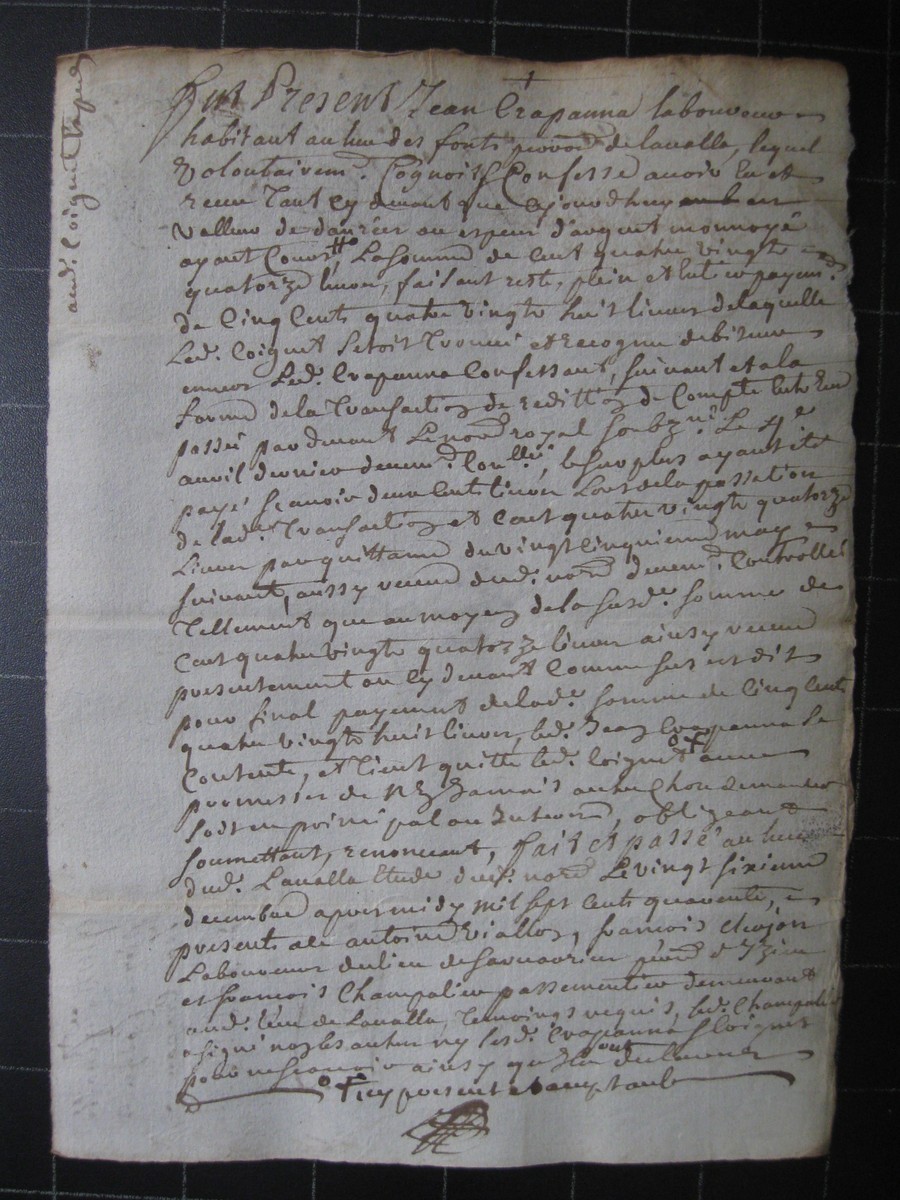 aud. Coignet
fut Present Jean Crapanna laboureur
habitant au lieu des fonts parr. de lavalla, lequel
Volontairem.t Cognoist Confesse avoir Eu et
receu Tant Cy devant que ajourdhuy en
valleur de danrées ou espesse d'argent monnoyé
ayant Cours, La somme de Cent quatre vingts
quatorze livres, faisant reste, plein et entier payem.t
de Cinq Cents quatre vingts huit livres de laquelle
Led. Coignet Setoit Trouvé et recogneu debiteur
envers Led. Crapanna Confessant, suivant et a la
forme de la Transaction de reddition de Compte Entr'Eux
passée pardevant Le no.re royal soubz.né Le
avril dernier deuem.t Con.llé, le surplus ayant été
payé Scavoir deux Cents livres Lors de la passation
de lad. Transaction et Cent quatre vingts quatorze
Livres par quittance du vingt Cinquieme may
suivant, aussy receue dud. no.re deuem.t Controllée
Tellement que au moyen de la susd. somme de
Cent quatre vingts quatorze livres ainsy receue
presentement ou Cy devant Comme sus est dit
pour final payement de lad. somme de Cinq Cents
quatre vingts huit livres, led. Jean Crapanna Se
Contente, et tient quitte led. Coignet avec
promesse de n'En Jamais autre Chose demander
Soit en principal ou Interest, obligeant
soumettant, renoncant, fait et passé au lieu
dud. Lavalla Etude dud. no.re Le vingt sixieme
decembre apres midy mil sept Cents quarente,
presents a Ce antoine Viallon, francois
Laboureur du lieu de parr. d'Izieu
et francois Champalier passementier demeurant
aud. lieu de Lavalla, Temoings requis, led. Champalier
a signé non les autres ny lesd. Crapanna Coignet
pour ne scavoir ainsy qu'ils ont declaré
icy present et acceptant